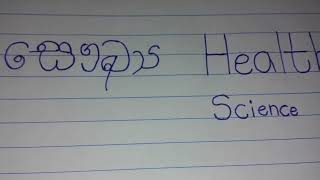 සෞඛ්‍ය Health
Science